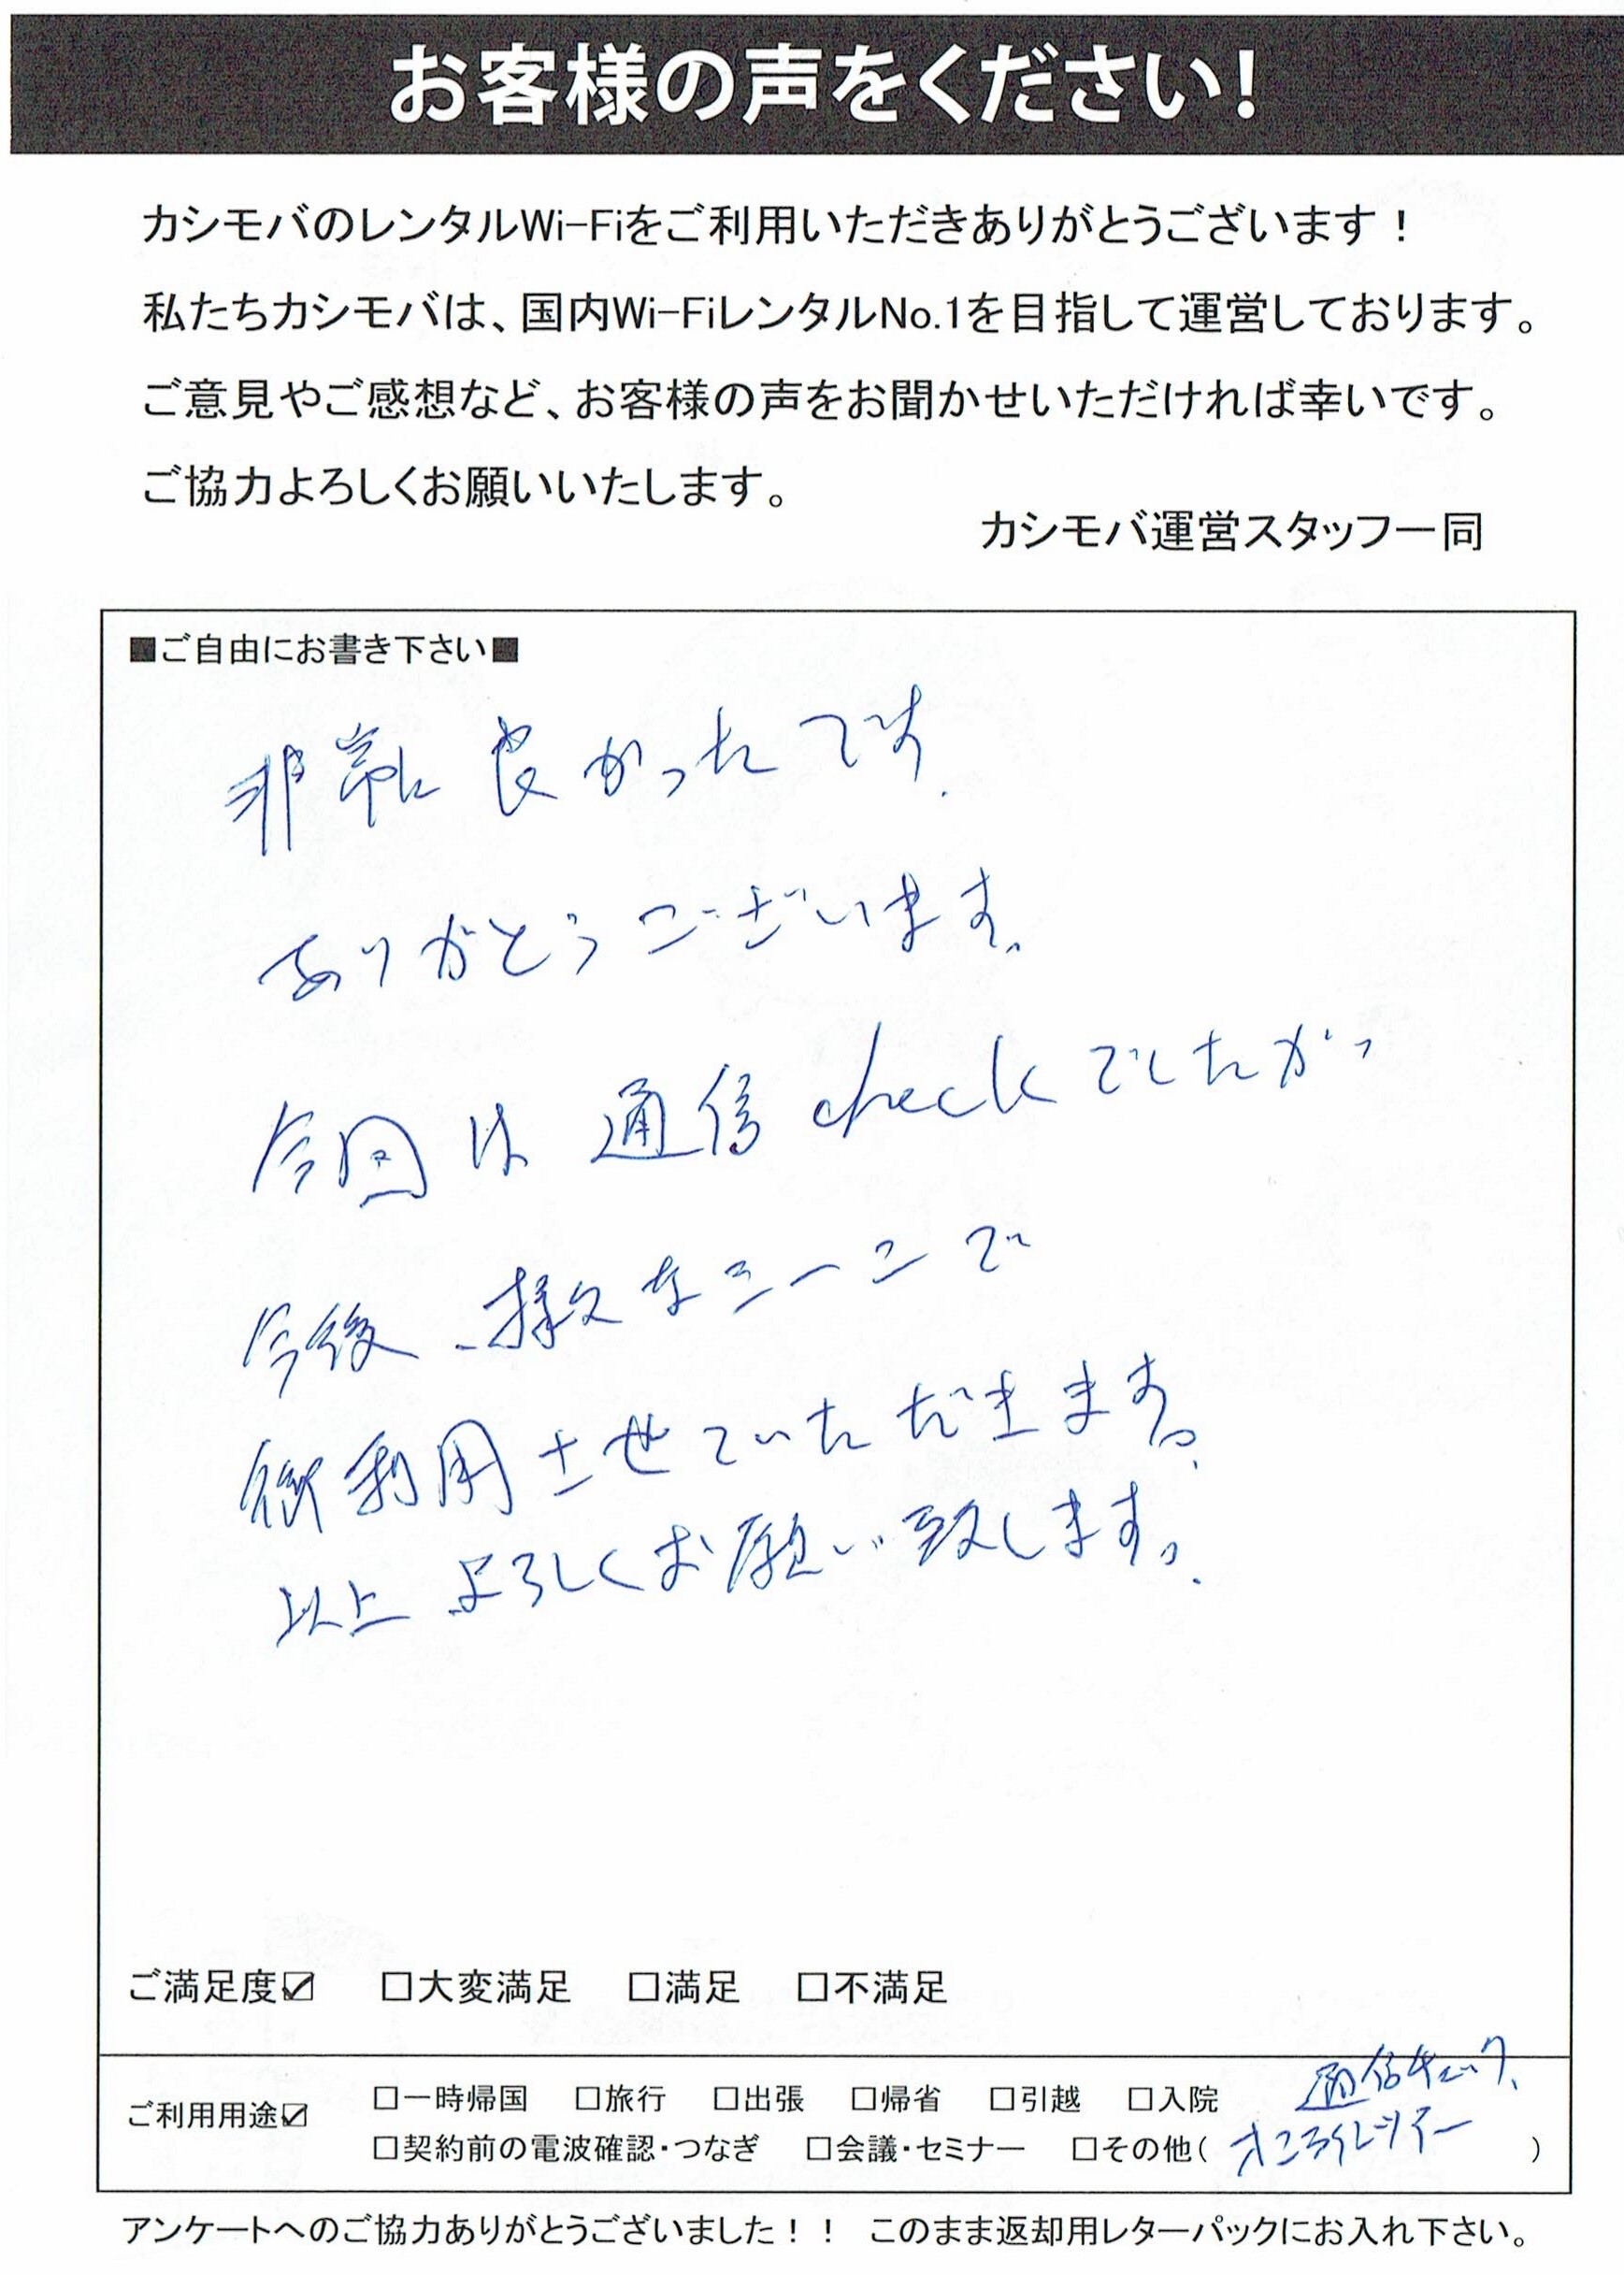 お客様の声をください!
カシモバのレンタルWi-Fiをご利用いただきありがとうございます！
私たちカシモバは、国内Wi-FiレンタルNo.1を目指して運営しております。
ご意見やご感想など、お客様の声をお聞かせいただければ幸いです。
ご協力よろしくお願いいたします。
カシモバ運営スタッフ一同
■ご自由にお書き下さい■
非常に良かったです.
ありがとうございます.
今回は通信checkでしたが
今後、様々なシーンで
利用させていただきます。
以上よろしくお願い致します。
ご満足度☑ □大変満足 □満足 □不満足
ご利用用途☑ □一時帰国 □旅行 □出張 □帰省 □引越 □入院 通信チェック、
□契約前の電波確認・つなぎ □会議・セミナー □その他( )
アンケートへのご協力ありがとうございました！！ このまま返却用レターパックにお入れ下さい。